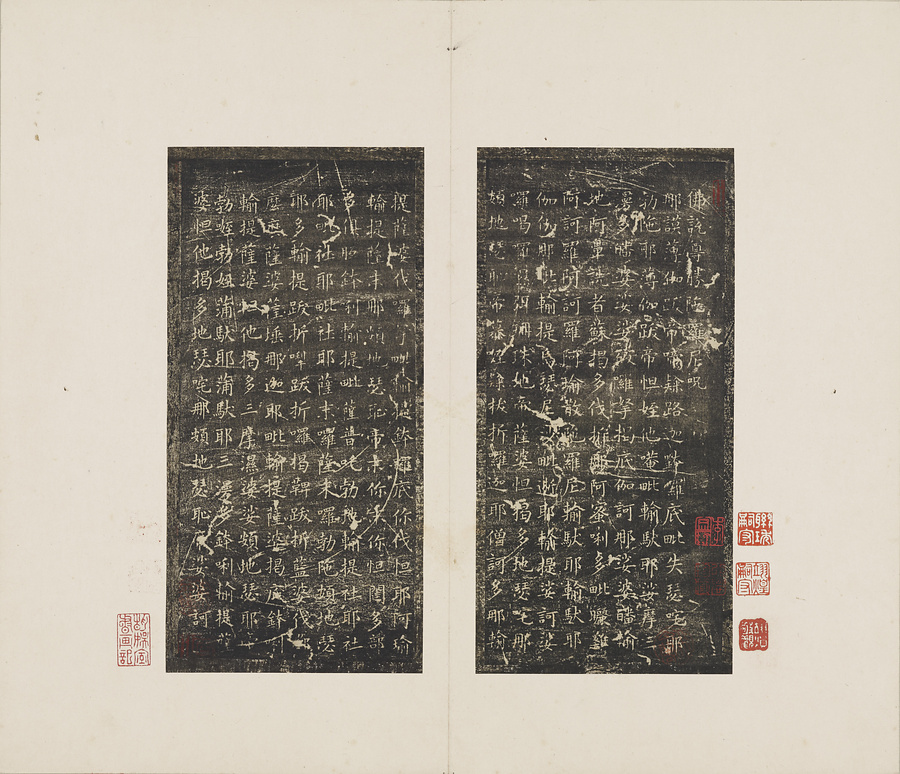 佛說尊勝陀羅尼呪
那謨薄伽跋帝啼隸路迦鉢囉底毗失瑟咤耶
勃陀耶薄伽跋帝怛姪他唵毗輸馱耶娑摩三
漫多皤婆娑娑破囉拏揭底伽訶那娑婆皤輸
地阿鼻詵者蘇揭多伐阿蜜唎多毗曬雞
阿訶羅阿訶羅阿瑜散陀羅尼輸馱耶輸馱耶
伽伽那毗輸提烏瑟尼沙毗逝耶輸提娑訶娑
囉喝囉濕弭珊珠地帝薩婆怛揭多地瑟咤那
頞地瑟帝慕姪隸拔折羅迦耶僧訶多那輸
提薩婆伐羅拏毗輸提鉢羅底你伐怛耶阿瑜
輸提薩末那頞地瑟恥帝末你末你怛闥多部
多俱胝鉢利輸提毗薩普吒勃地輸提社耶社
耶毗社耶毗社耶薩末囉薩末羅勃陁頞地瑟
耶多輸提跋折囉跋折囉揭鞞跋折藍婆伐
麼麼薩婆薩埵那迦耶毗輸提薩婆揭底鉢
輸提薩婆怛他揭多三摩濕婆娑頞地瑟耶
勃姪勃姪蒲馱耶蒲馱耶三漫多鉢唎輸提薩
婆怛他揭多地瑟咤那頞地瑟恥帝娑婆訶